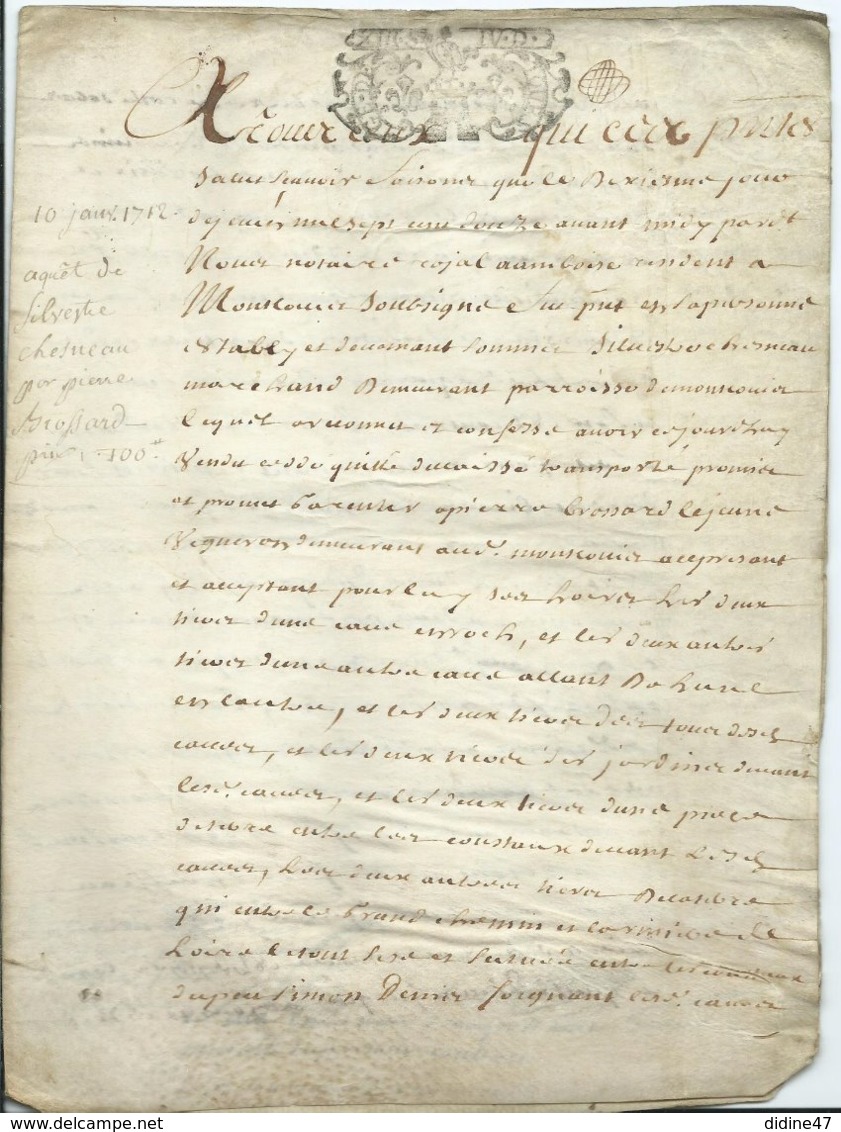 A tous ceux qui ces pntes
Salut scavoir faisons que le dixiesme jour
de janvier mil sept cens douze avant midy par dt
Nous notaire royal a amboise residant a
Montlouis soubsigné fut pnt en sa personne
estably et deuemant soumis Silvestre chesneau
marchand demeurant parroisse de montlouis
lequel a reconnu et confessé avoir cejourdhuy
vendu ceddé quitté delaissé transporté promis
et promet garentir a pierre brossard le jeune
vigneron demeurant aud. montlouis a ce present
et acceptant pour luy ses hoires les deux
tiers dune cave en roch, et les deux autres
tiers dune autre cave allant de lune
en lautre, et les deux tiers des
caves, et les deux tiers des jardins devant
lesd. caves, et les deux tiers dune piece
de terre entre les coustaux devant lesd
caves, les deux autres tiers
qui entre le grand chemin et la riviere de
Loire le tout sise et située entre les
Simon Denis joignant lesd. caves
10 janv. 1712
aquêt de
silvestre
chesneau
par pierre
Brossard
prix 100
didine47